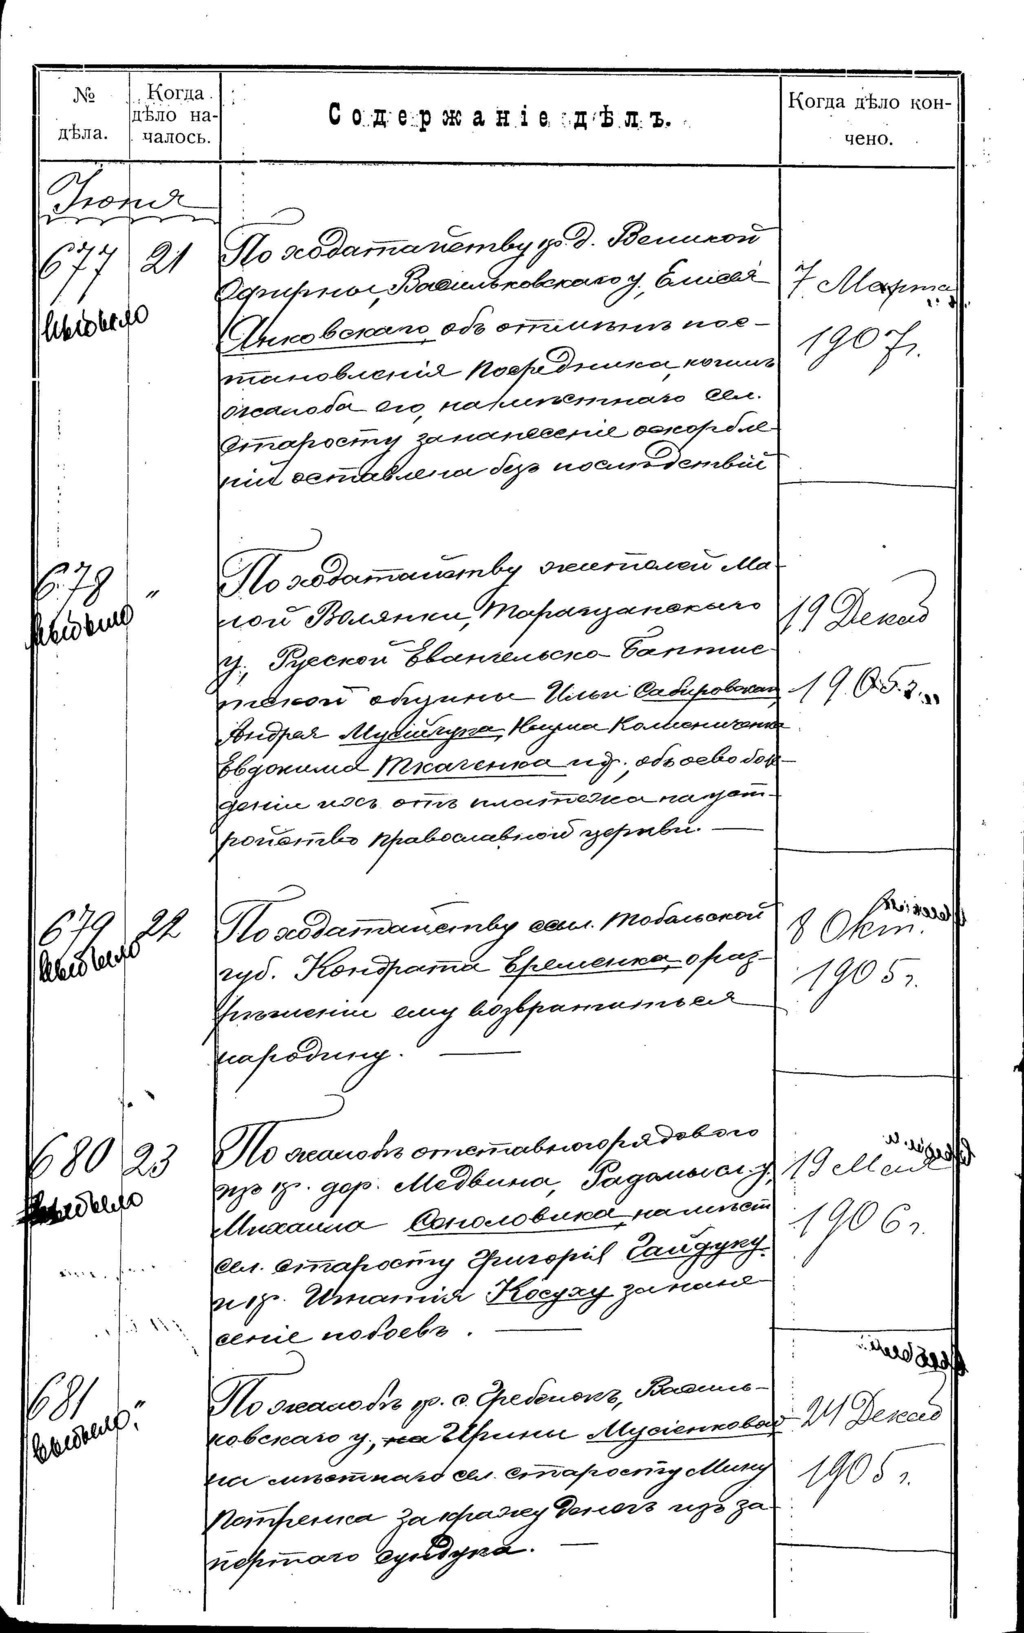 № дѣла.
Когда дѣло началось.
Содержаніе дѣлъ.
Когда дѣло кончено.
Іюня
677 21
По ходатайству кр. д. Великой
Офирны, Васильковскаго у, Елисея
Янковскаго объ отмѣнѣ пос-
тановленія Посредника, коимъ
жалоба его, на мѣстнаго сел.
Старосту за нанесеніе оскорбле
ній оставлена безъ послѣдствій
7 Марта
1907 г.
выбыло
678 "
По ходатайству жителей Ма-
лой Волянки, Таращанскаго
у., Руской Евангельско-Баптис
тской общины Ильи
Андрея
Евдокима Ткаченка и др., объ освобож-
деніи ихъ отъ платежа на уст-
ройство православной церкви. —
19 Декаб
1905 г.
выбыло
679 22
По ходатайству ссыл. Тобольской
губ. Кондрата Еременка, о раз-
рѣшеніи ему возвратиться
на родину. —
8 Окт.
1905 г.
выбыло
680 23
По жалобѣ отставного рядового
изъ кр. дер. Медвина, Радомысл. у,
Михаила Соколовика, на мѣст
сел. старосту Григорія Гайдуку
и кр. Игнатія Косуху за нане
сеніе побоевъ. —
19 Мая
1906 г.
выбыло
681 "
По жалобѣ кр. с. Гребенокъ, Василь-
ковскаго у, Ирины Мусіенковой
на мѣстнаго сел. старосту Мину
Петренка за кражу денегъ изъ за-
пертаго сундука. —
24 Декаб
1905 г.
выбыло